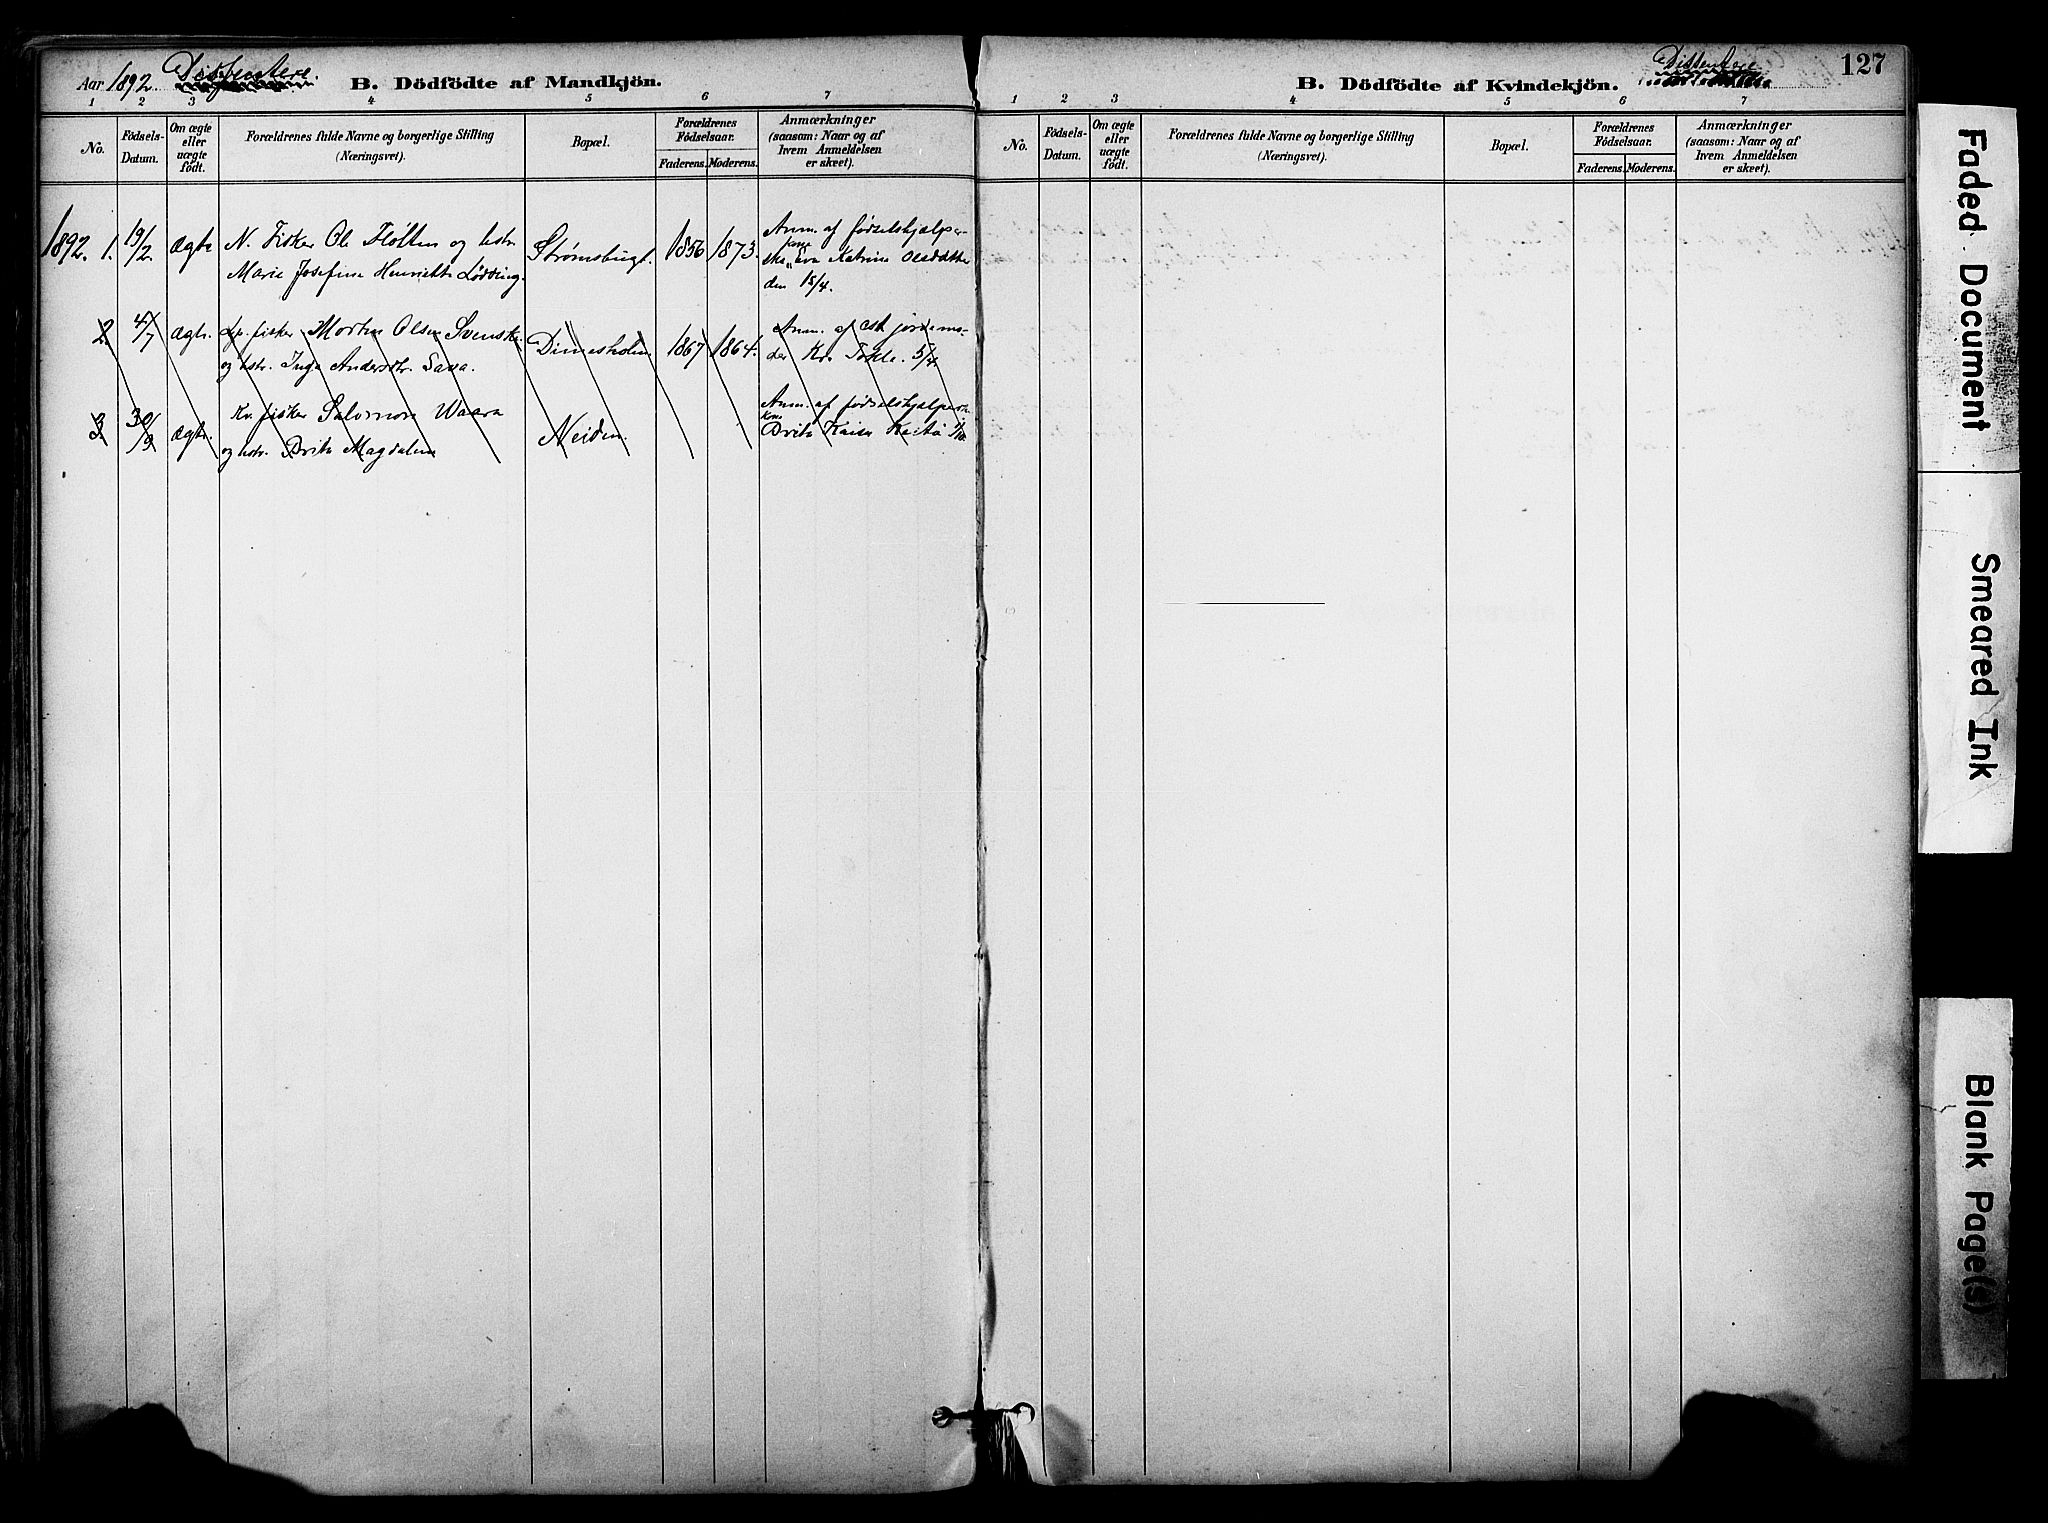 Aar 1892. Dissentere. B. Dödfödte af Mandkjön.
1 2 3 4 5 6 7
No.
Födsels-
Datum.
Om ægte
eller
uægte
födt.
Forældrenes fulde Navne og borgerlige Stilling
(Næringsvei).
Bopæl.
Forældrenes
Födselsaar.
Faderens. Moderens.
Anmærkninger
(saasom: Naar og af
hvem Anmeldelsen
er skeet).
1892. 1. 19/2. Ægte N. Fisker Ole Fløtten og hstr.
Marie Josefine Henriette Lødding.
Strømsbugt. 1856 1873.
Anm. af fødselshjælper-
kone
ske" Eva Katrine Olsdatter
den 15/4.
2. 4/7 Ægte. Lp. fisker Morten Olsen Svenske
og hstr. Inga Andersdtr. Sava.
Dimesholm. 1867 1864.
Anm. af est jordemo-
der Kr. Tokle.
3. 30/9 Ægte. Kv. fisker Salomon Waara
og hstr. Brita Magdalena
Neiden.
Anm. af fødselshjælpersk
kone
Brita Kaisa
Dissentere 127
B. Dödfödte af Kvindekjön.
1 2 3 4 5 6 7
No.
Födsels-
Datum.
Om ægte
eller
uægte
födt.
Forældrenes fulde Navne og borgerlige Stilling
(Næringsvei).
Bopæl.
Forældrenes
Födselsaar.
Faderens. Moderens.
Anmærkninger
(saasom: Naar og af
hvem Anmeldelsen
er skeet).
Faded Document
Smeared Ink
Blank Page(s)